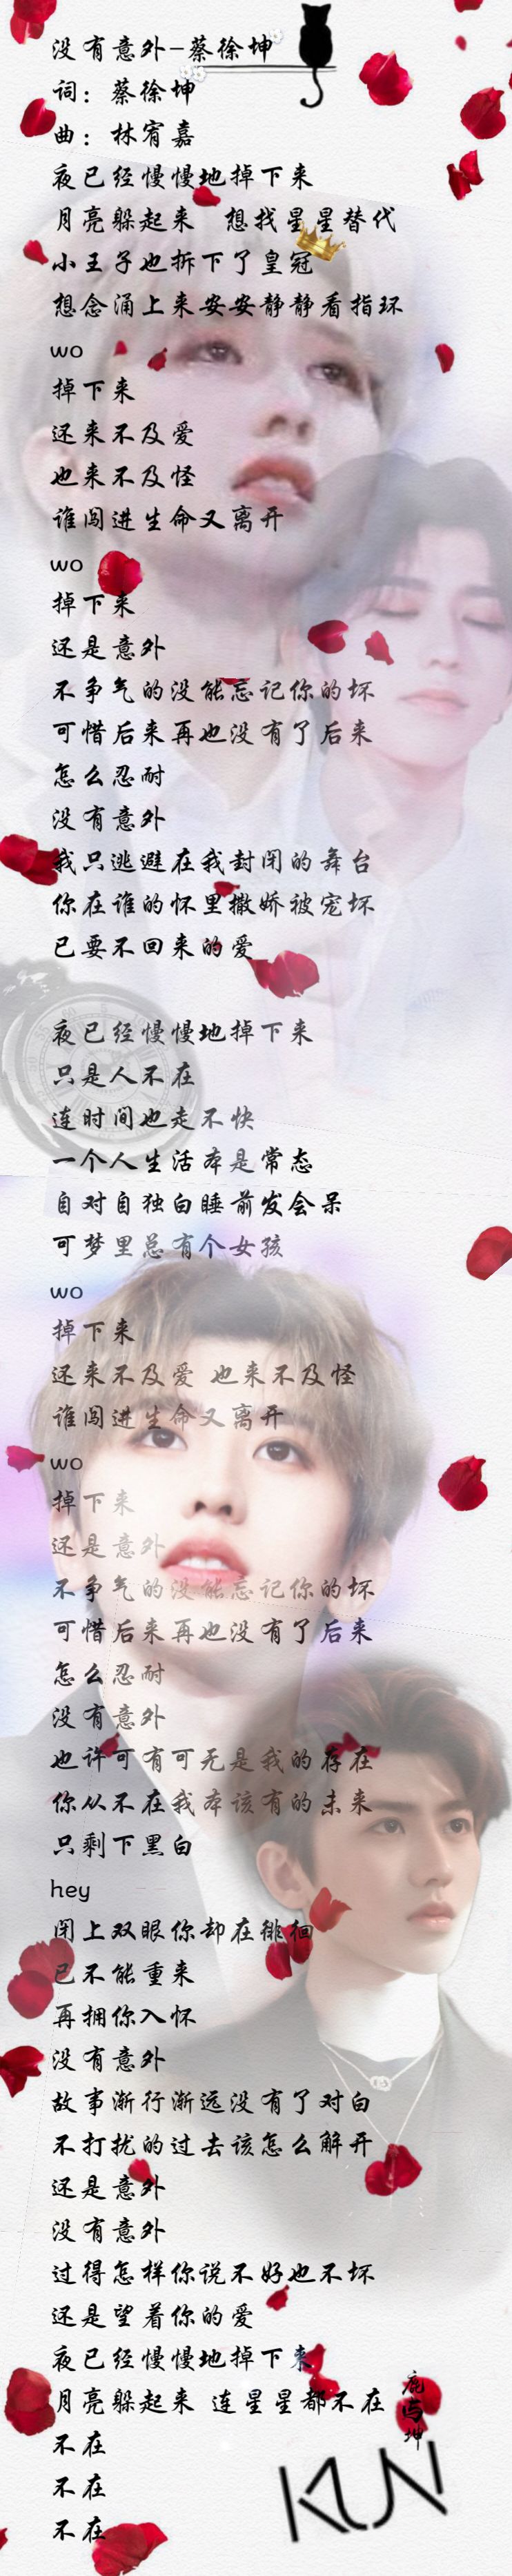 没有意外-蔡徐坤
词：蔡徐坤
曲：林宥嘉
夜已经慢慢地掉下来
月亮躲起来 想找星星替代
小王子也拆下了皇冠
想念涌上来安安静静看指环
wo
掉下来
还来不及爱
也来不及怪
谁闯进生命又离开
wo
掉下来
还是意外
不争气的没能忘记你的坏
可惜后来再也没有了后来
怎么忍耐
没有意外
我只逃避在我封闭的舞台
你在谁的怀里撒娇被宠坏
已要不回来的爱
夜已经慢慢地掉下来
只是人不在
连时间也走不快
一个人生活本是常态
自对自独白睡前发会呆
可梦里总有个女孩
wo
掉下来
还来不及爱 也来不及怪
谁闯进生命又离开
wo
掉下来
还是意外
不争气的没能忘记你的坏
可惜后来再也没有了后来
怎么忍耐
没有意外
也许可有可无是我的存在
你从不在我本该有的未来
只剩下黑白
hey
闭上双眼你却在徘徊
已不能重来
再拥你入怀
没有意外
故事渐行渐远没有了对白
不打扰的过去该怎么解开
还是意外
没有意外
过得怎样你说不好也不坏
还是望着你的爱
夜已经慢慢地掉下来
月亮躲起来 连星星都不在
不在
不在
不在
KUN